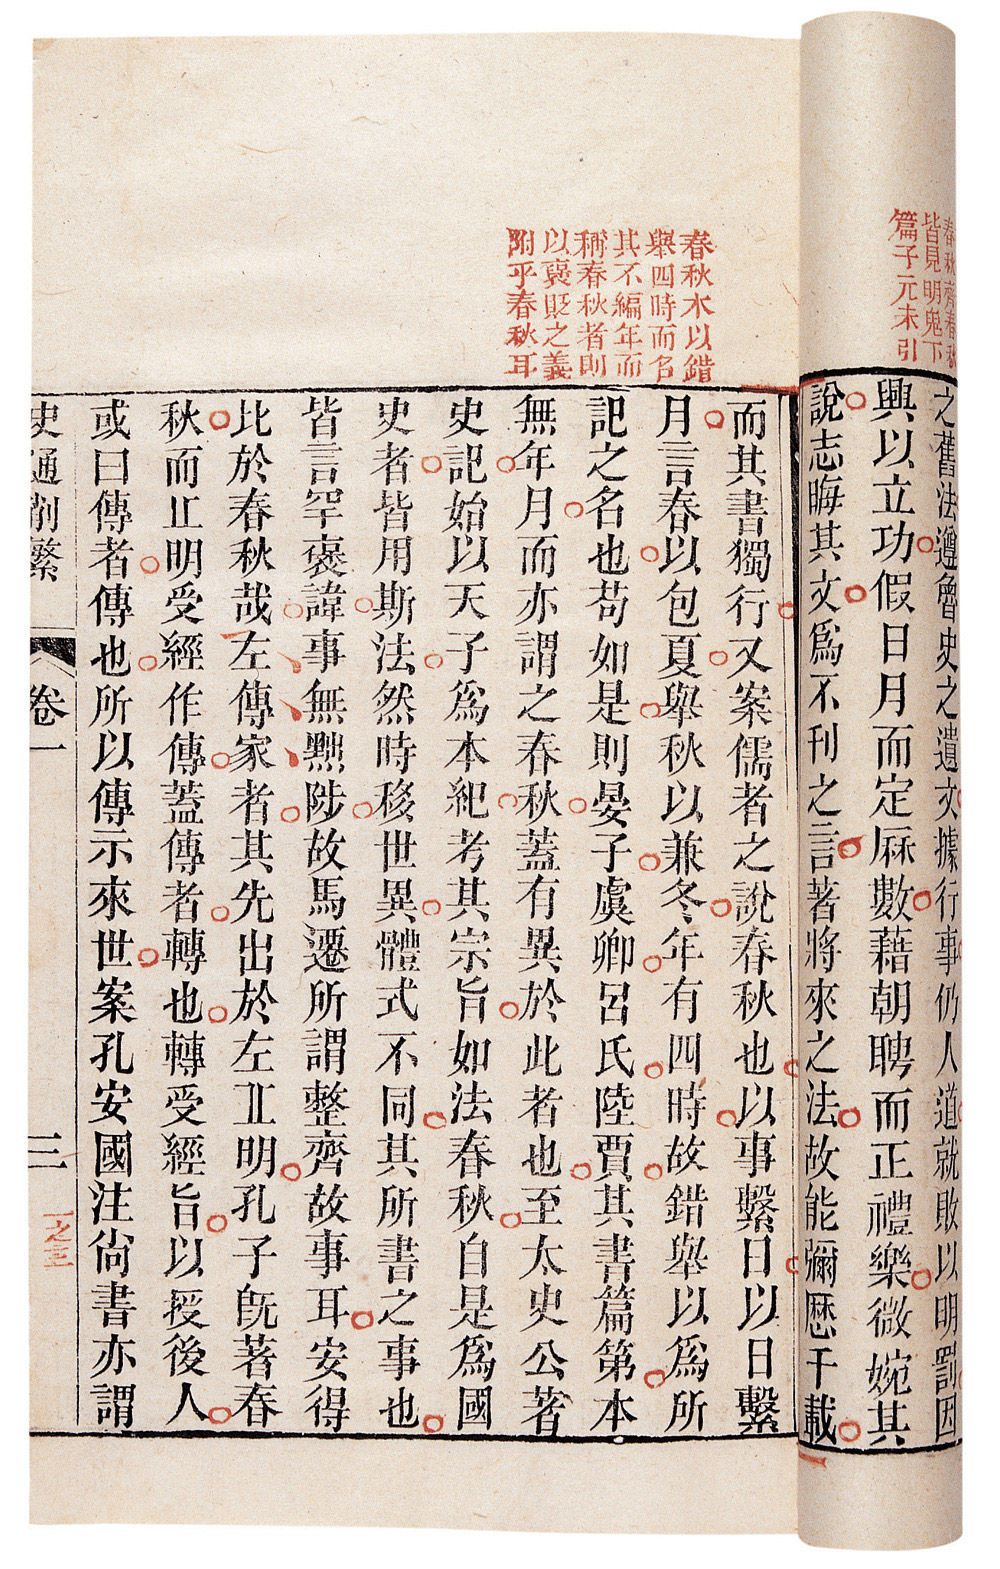 春秋齊春秋
皆見明鬼下
篇子元未引
之舊法遵魯史之遺文據行事仍人道就敗以明罰因
興以立功假日月而定厤數藉朝聘而正禮樂微婉其
說志晦其文爲不刊之言著將來之法故能彌歷千載
春秋本以錯
舉四時而名
其不編年而
稱春秋者則
以褒貶之義
附乎春秋耳
而其書獨行又案儒者之說春秋也以事繫日以日繫
月言春以包夏舉秋以兼冬年有四時故錯舉以爲所
記之名也苟如是則晏子虞卿呂氏陸賈其書篇第本
無年月而亦謂之春秋蓋有異於此者也至太史公著
史記始以天子爲本紀考其宗旨如法春秋自是爲國
史者皆用斯法然時移世異體式不同其所書之事也
皆言罕褒諱事無黜陟故馬遷所謂整齊故事耳安得
比於春秋哉左傳家者其先出於左丘明孔子旣著春
秋而丘明受經作傳蓋傳者轉也轉受經旨以授後人
或曰傳者傳也所以傳示來世案孔安國注尙書亦謂
史通削繁
卷一
三
一之三